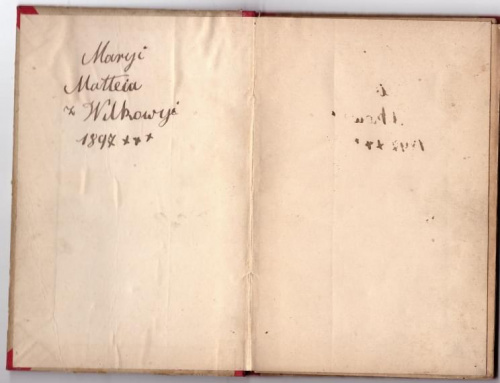 Maryi
Matteia
z Wilkowyi
1897 ***